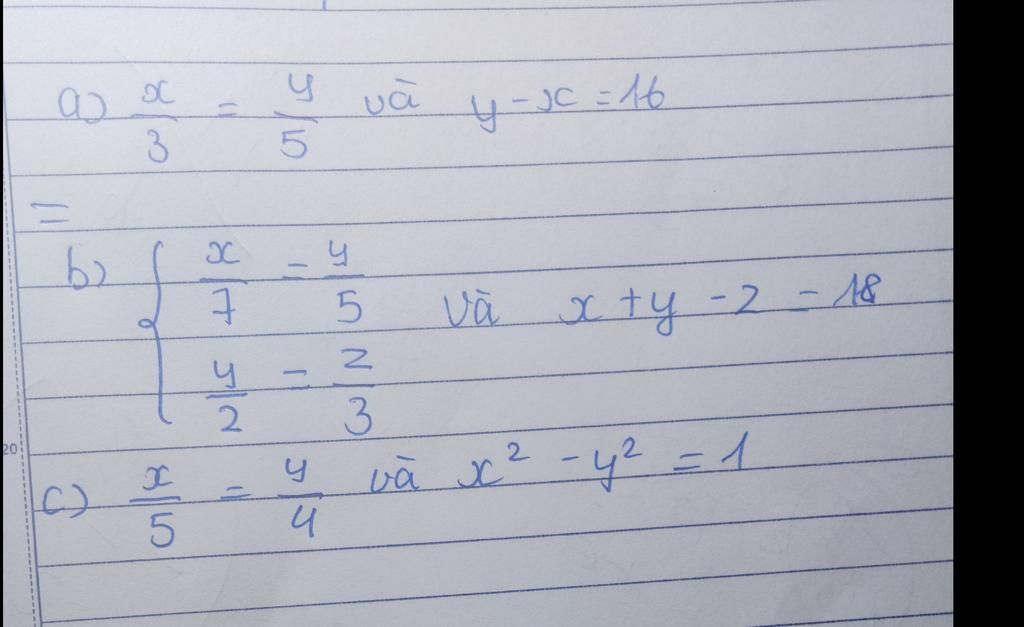 a) x/3 = y/5 và y - x = 16
=
b) { x/7 = y/5
y/2 = z/3 và x + y - z = 18
c) x/5 = y/4 và x² - y² = 1
20